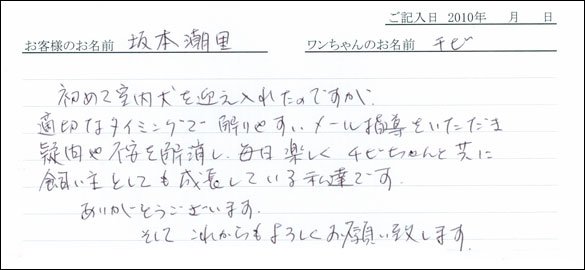 ご記入日 2010年 月 日
お客様のお名前 坂本潮里 ワンちゃんのお名前 チビ
初めて室内犬を迎え入れたのですが、
適切なタイミングで解りやすいメール指導をいただき
疑問や不安を解消し、毎日楽しくチビちゃんと共に
飼い主としても成長している私達です。
ありがとうございます。
そしてこれからもよろしくお願い致します。